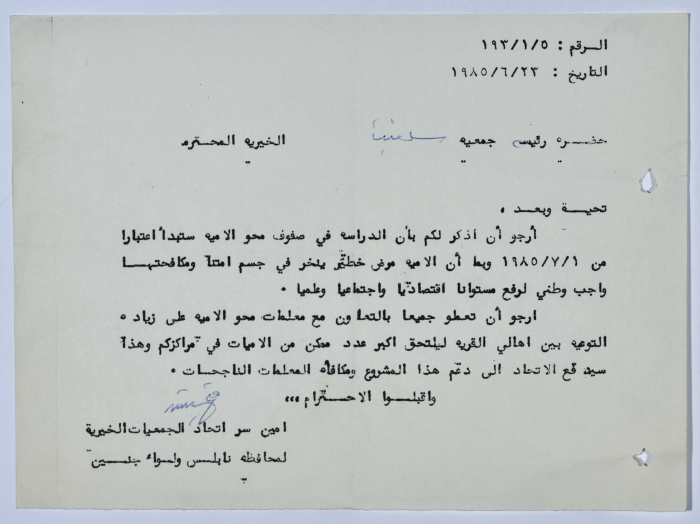 الرقم : ١٩٣/١/٥
التاريخ : ١٩٨٥/٦/٢٣
حضره رئيس جمعيه الخيريه المحترم
تحية وبعد ،
أرجو أن أذكر لكم بأن الدراسه في صفوف محو الاميه ستبدأ اعتبارا
من ١٩٨٥/٧/١ وبما أن الاميه مرض خطير ينخر في جسم امتنا ومكافحتها
واجب وطني لرفع مستوانا اقتصاديا واجتماعيا وعلميا .
ارجو أن تعملو جميعا بالتعاون مع معلمات محو الاميه على زياده
التوعيه بين اهالي القريه ليلتحق اكبر عدد ممكن من الاميات في مراكزكم وهذا
سيدفع الاتحاد الى دعم هذا المشروع ومكافأة المعلمات الناجحات .
واقبلوا الاحترام ،،،
امين سر اتحاد الجمعيات الخيرية
لمحافظه نابلس ولواء جنين